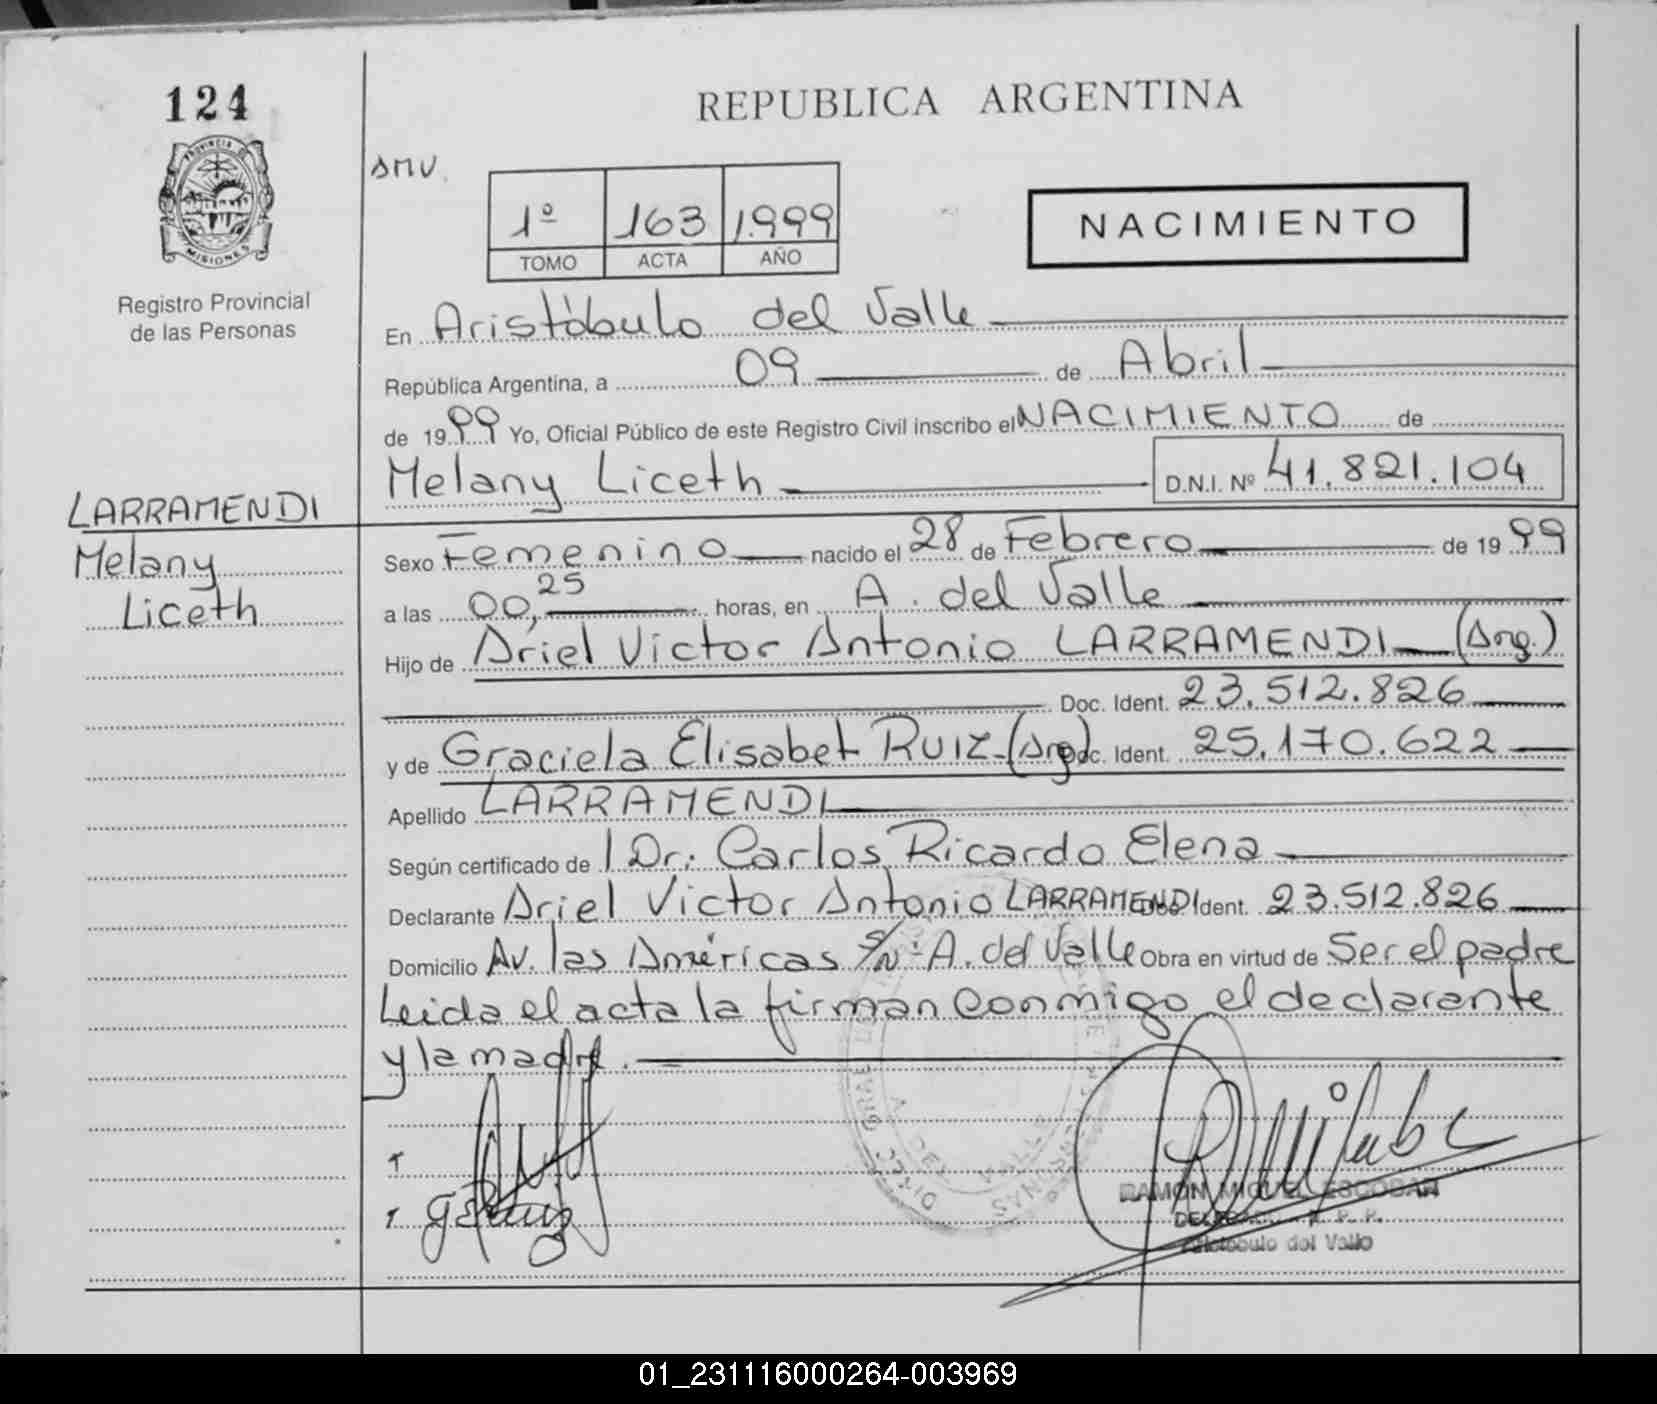 124
PROVINCIA DE
MISIONES
Registro Provincial
de las Personas
LARRAMENDI
Melany
Liceth
REPUBLICA ARGENTINA
SMV.
1º 163 1.999
TOMO ACTA AÑO
NACIMIENTO
En Aristóbulo del Valle
República Argentina, a 09 de Abril
de 1999 Yo, Oficial Público de este Registro Civil inscribo el NACIMIENTO de
Melany Liceth D.N.I. Nº 41.821.104
Sexo Femenino nacido el 28 de Febrero de 1999
a las 00,25 horas, en A. del Valle
Hijo de Ariel Victor Antonio LARRAMENDI (Arg.)
Doc. Ident. 23.512.826
y de Graciela Elisabet RUIZ (Arg) Doc. Ident. 25.170.622
Apellido LARRAMENDI
Según certificado de Dr. Carlos Ricardo Elena
Declarante Ariel Victor Antonio LARRAMENDI Doc. Ident. 23.512.826
Domicilio Av. las Américas S/Nº A. del Valle Obra en virtud de Ser el padre
Leida el acta la firman conmigo el declarante
y la madre.
RAMON MIGUEL ESCOBAR
DELEGADO R. P. P.
Aristobulo del Valle
01_231116000264-003969